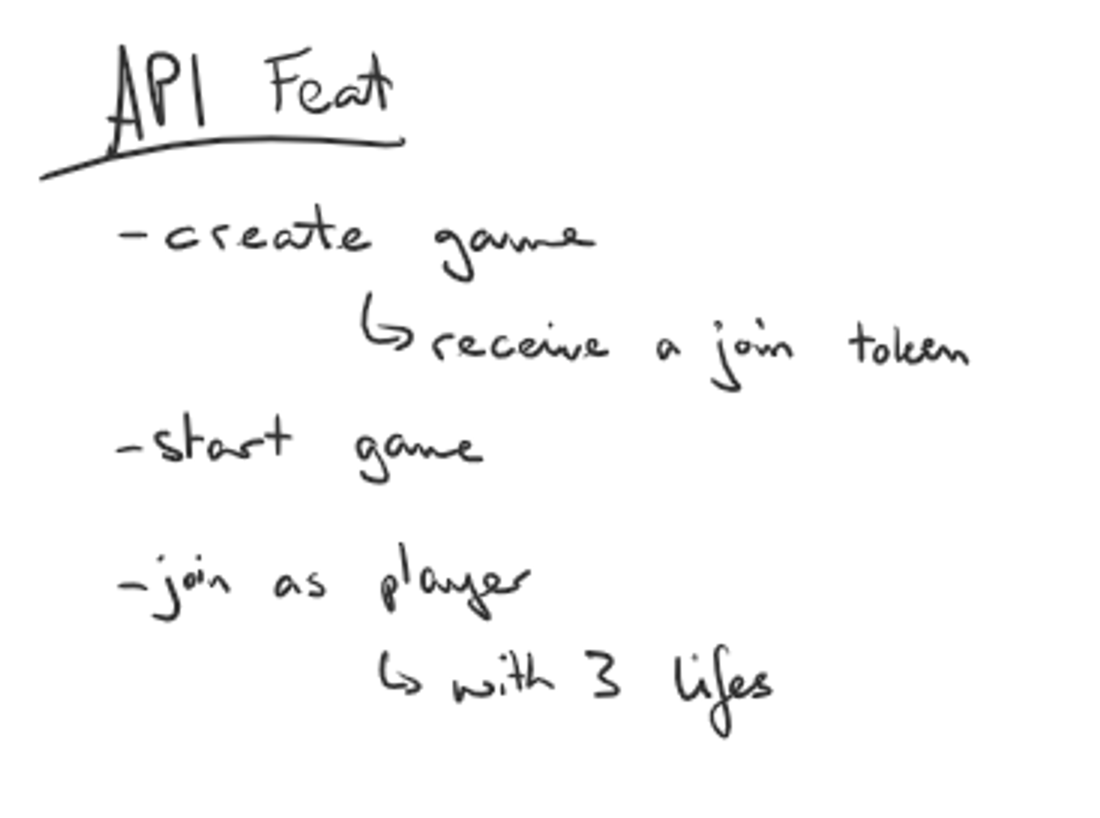 API Feat
- create game
↳ receive a join token
- start game
- join as player
↳ with 3 lifes